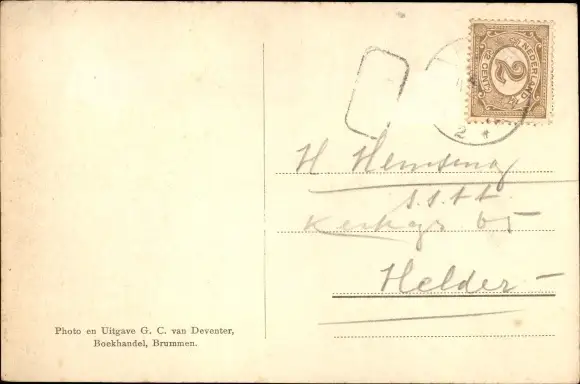 2 CENT
NEDERLAND
2
2
H Hemsing
s.s.t.t.
Kerkgr 65
Helder
Photo en Uitgave G. C. van Deventer,
Boekhandel, Brummen.